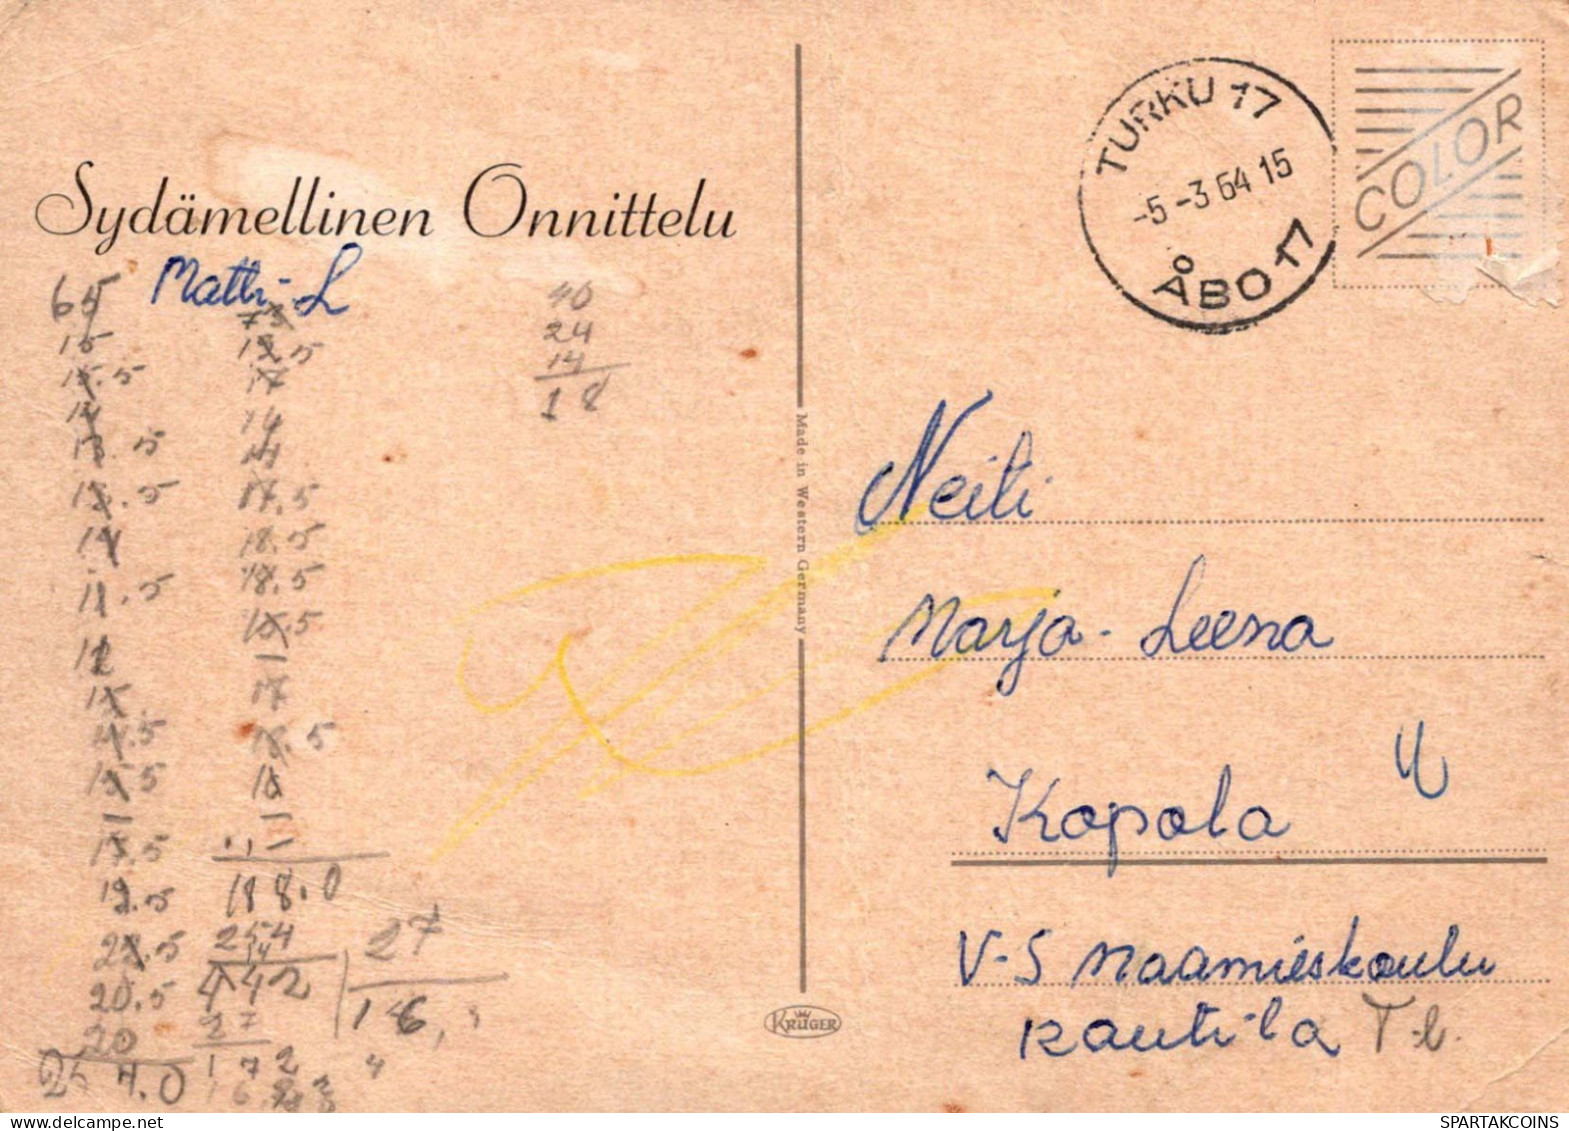 Sydämellinen Onnittelu
Matti-L
65
15
15.5
14
13.5
13.5
14
11.5
12
15
14.5
15.5
17.5
19.5
22.5
20.5
20
254.0
73
12.5
17
14
14
17.5
18.5
18.5
15.5
17
18.5
188.0
254
442
27
172
27
16,3
4
40
24
14
18
Made in Western Germany
KRÜGER
TURKU 17
-5-3 64 15
ÅBO 17
COLOR
Neiti
Marja-Leena
Kopola
V-S Maamieskoulu
T-l.
SPARTAKCOINS